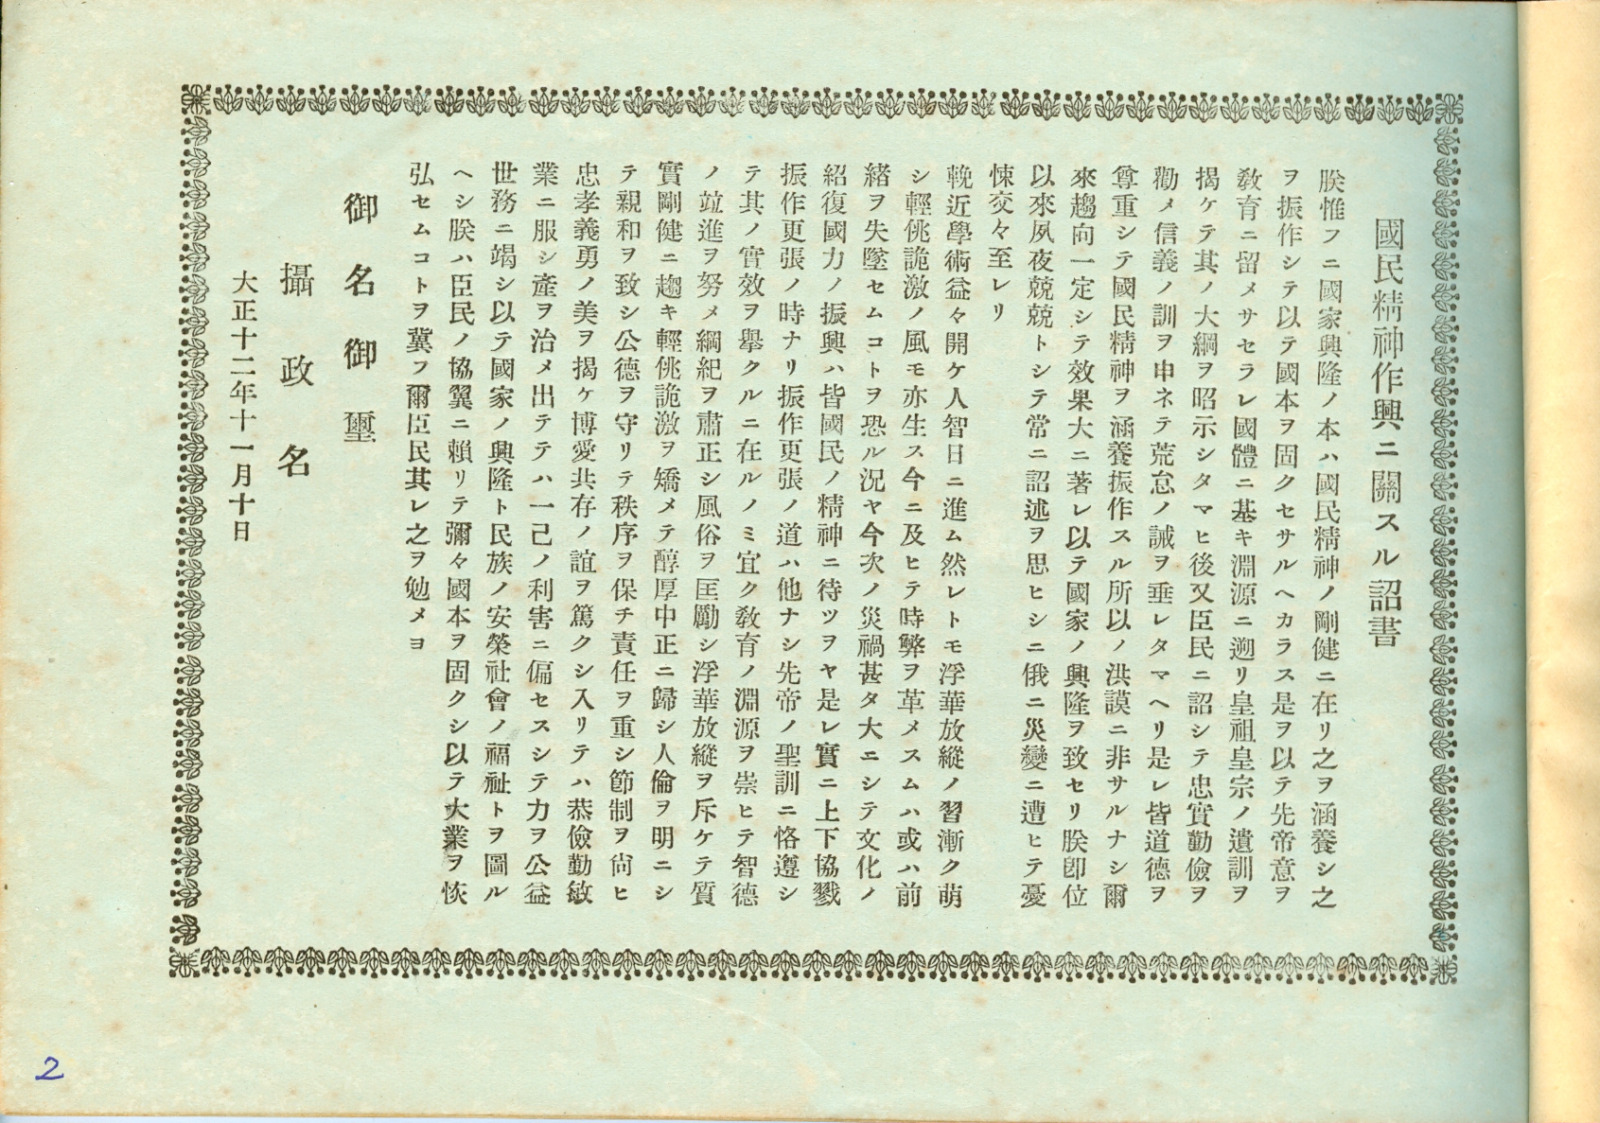 國民精神作興ニ關スル詔書
朕惟フニ國家興隆ノ本ハ國民精神ノ剛健ニ在リ之ヲ涵養シ之
ヲ振作シテ以テ國本ヲ固クセサルヘカラス是ヲ以テ先帝意ヲ
敎育ニ留メサセラレ國體ニ基キ淵源ニ遡リ皇祖皇宗ノ遺訓ヲ
揭ケテ其ノ大綱ヲ昭示シタマヒ後又臣民ニ詔シテ忠實勤儉ヲ
勸メ信義ノ訓ヲ申ネテ荒怠ノ誡ヲ垂レタマヘリ是レ皆道德ヲ
尊重シテ國民精神ヲ涵養振作スル所以ノ洪謨ニ非サルナシ爾
來趨向一定シテ效果大ニ著レ以テ國家ノ興隆ヲ致セリ朕卽位
以來夙夜兢兢トシテ常ニ詔述ヲ思ヒシニ俄ニ災變ニ遭ヒテ憂
悚交々至レリ
輓近學術益々開ケ人智日ニ進ム然レトモ浮華放縱ノ習漸ク萌
シ輕佻詭激ノ風モ亦生ス今ニ及ヒテ時弊ヲ革メスムハ或ハ前
緒ヲ失墜セムコトヲ恐ル況ヤ今次ノ災禍甚タ大ニシテ文化ノ
紹復國力ノ振興ハ皆國民ノ精神ニ待ツヲヤ是レ實ニ上下協戮
振作更張ノ時ナリ振作更張ノ道ハ他ナシ先帝ノ聖訓ニ恪遵シ
テ其ノ實效ヲ擧クルニ在ルノミ宜ク敎育ノ淵源ヲ崇ヒテ智德
ノ竝進ヲ努メ綱紀ヲ肅正シ風俗ヲ匡勵シ浮華放縱ヲ斥ケテ質
實剛健ニ趨キ輕佻詭激ヲ矯メテ醇厚中正ニ歸シ人倫ヲ明ニシ
テ親和ヲ致シ公德ヲ守リテ秩序ヲ保チ責任ヲ重シ節制ヲ尙ヒ
忠孝義勇ノ美ヲ揚ケ博愛共存ノ誼ヲ篤クシ入リテハ恭儉勤敏
業ニ服シ產ヲ治メ出テテハ一己ノ利害ニ偏セスシテ力ヲ公益
世務ニ竭シ以テ國家ノ興隆ト民族ノ安榮社會ノ福祉トヲ圖ル
ヘシ朕ハ臣民ノ協翼ニ賴リテ彌々國本ヲ固クシ以テ大業ヲ恢
弘セムコトヲ冀フ爾臣民其レ之ヲ勉メヨ
御名御璽
攝政名
大正十二年十一月十日
2